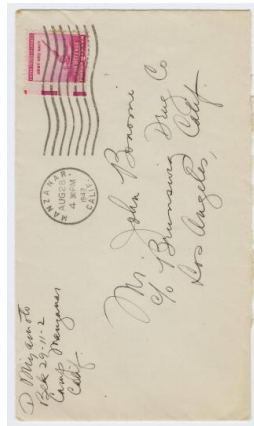 MANZANAR
AUG 28
4 PM
1942
CALIF.
Mr. John Bonomi
c/o Brunswig Drug Co
Los Angeles,
Calif.
D Miyamoto
Blk 29-11-2
Camp Manzanar
Calif